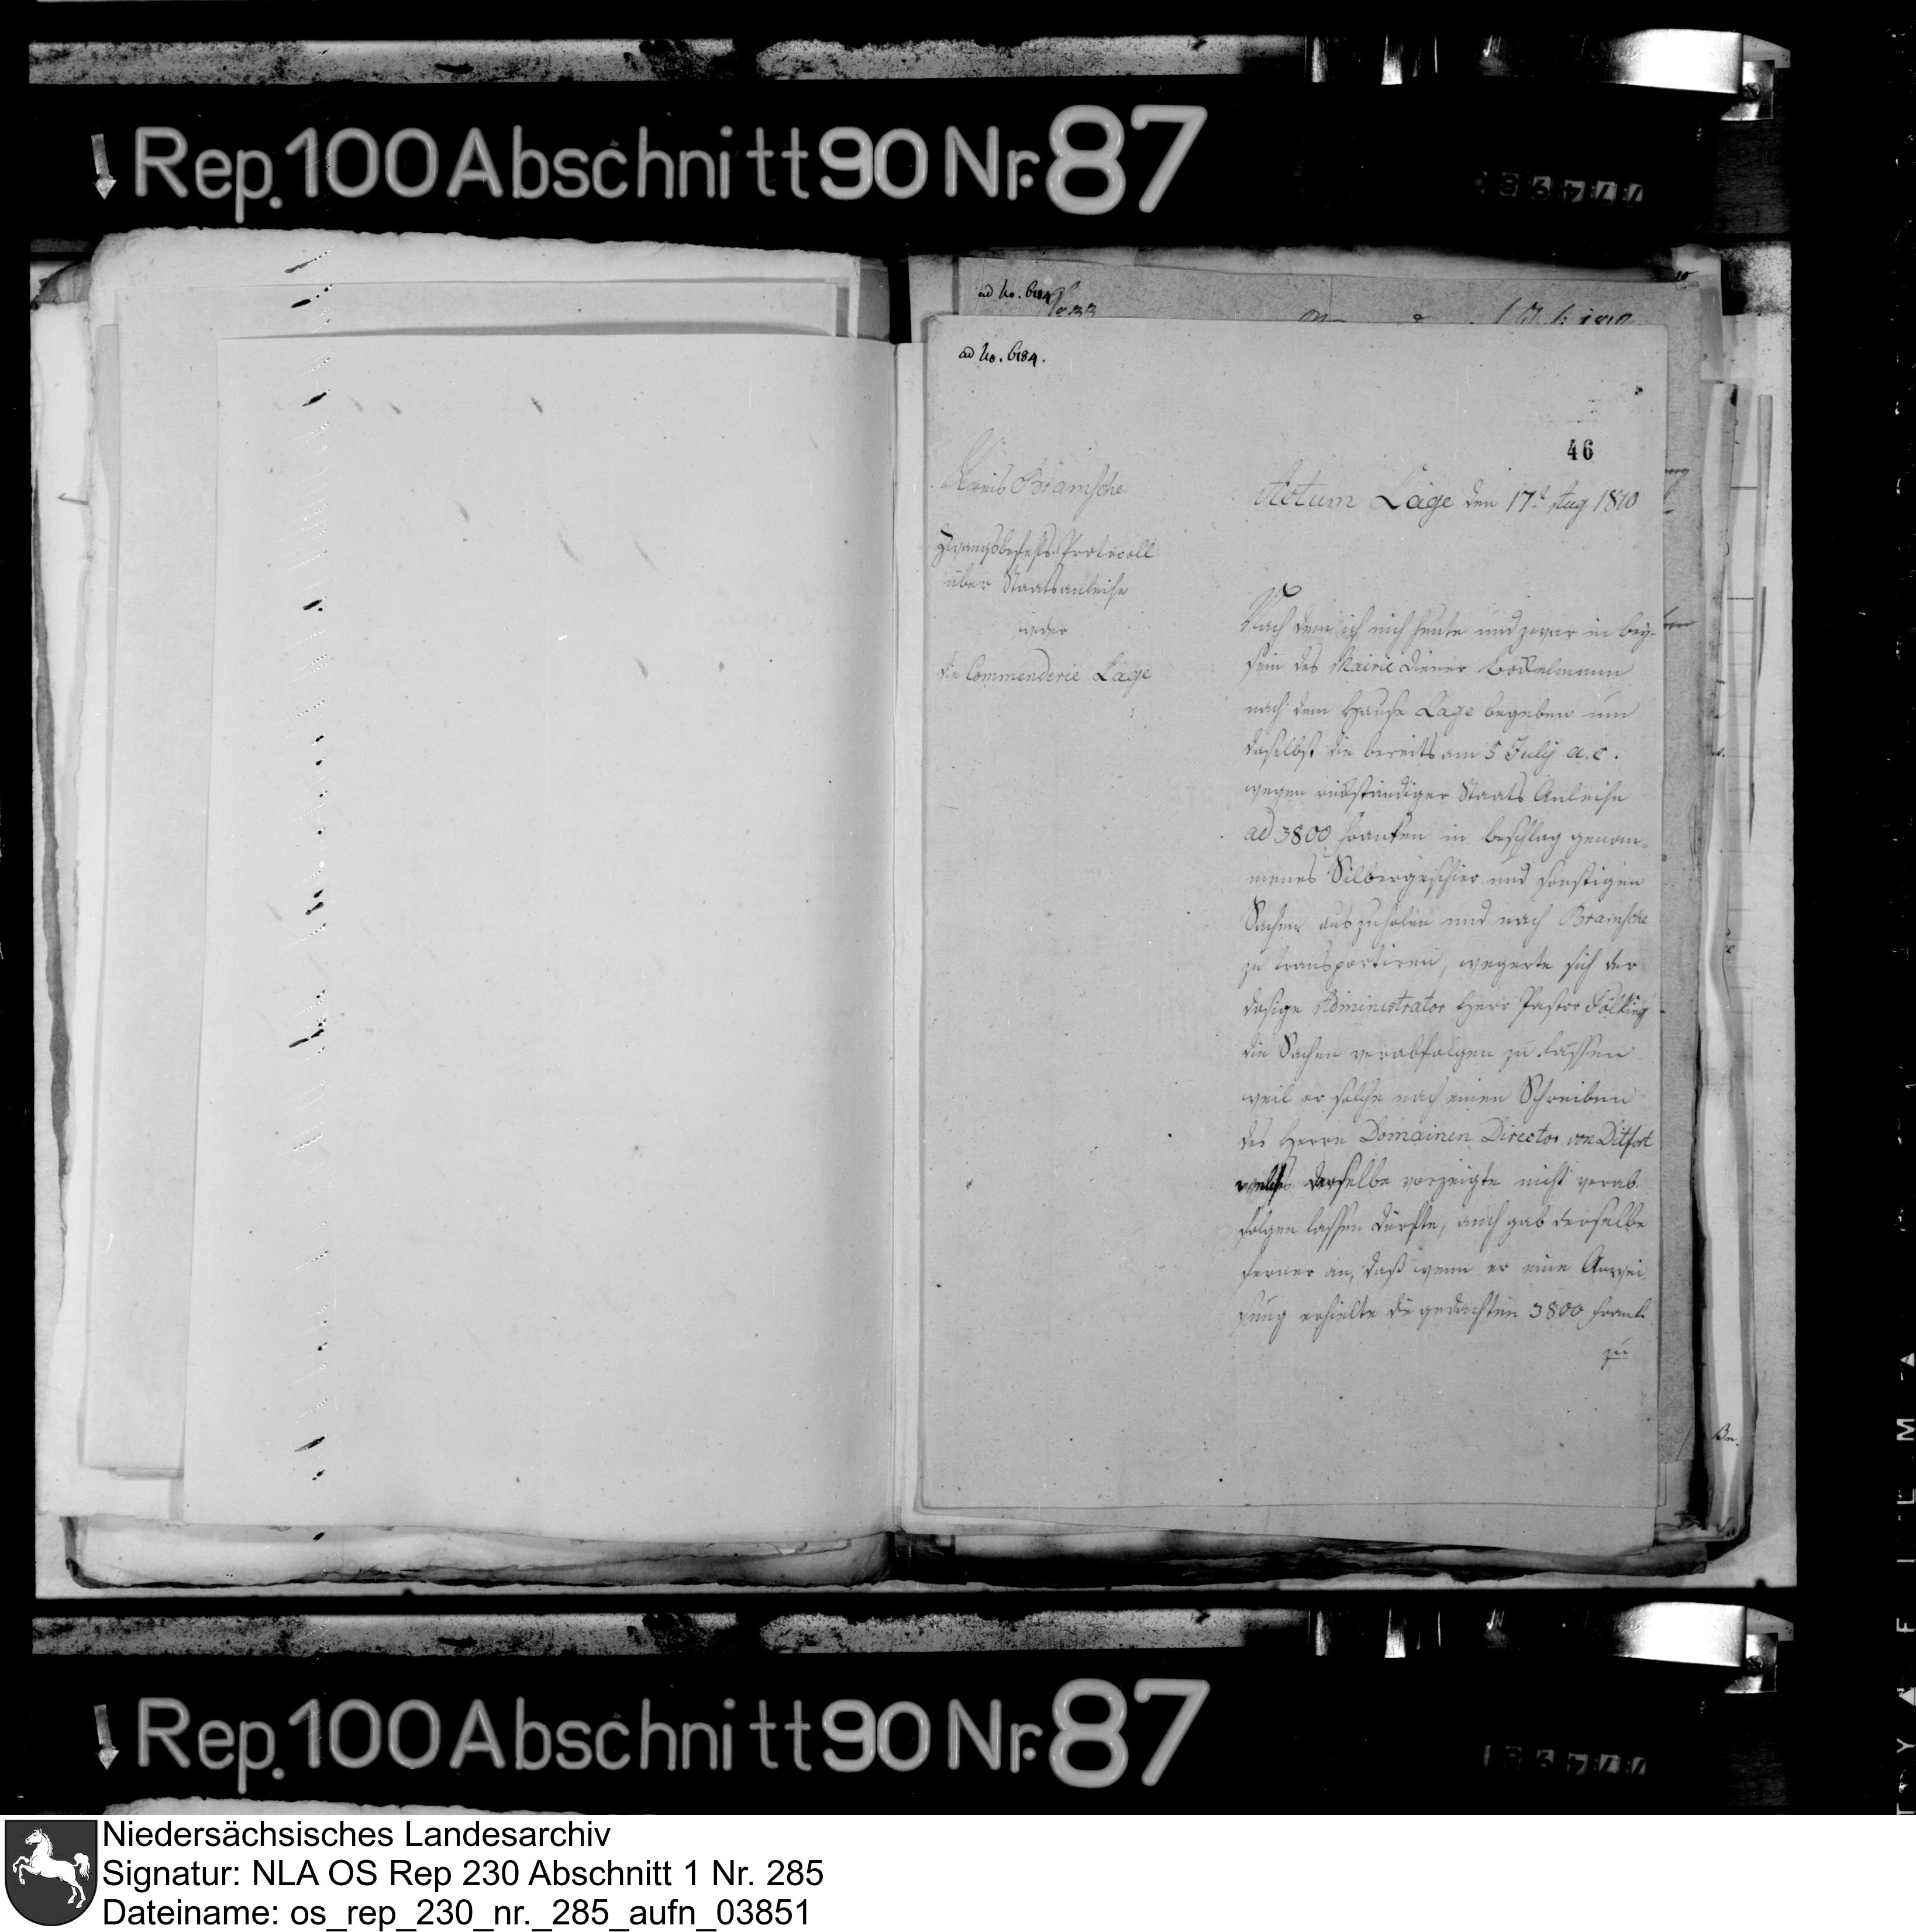 Rep. 100 Abschnitt 90 Nr. 87
ad No. 6184
ad No. 6184.
46
Kreis Bramsche
Zwangsbefehls-Protocoll
über Staatsanleihe
wider
die Commenderie Lage
Actum Lage den 17t Aug 1810
Nach dem ich mich heute und zwar in bey-
sein des Mairie Diener Böckelmann
nach dem Hause Lage begeben um
daselbst die bereits am 5 July a. c.
wegen rückständiger Staats Anleihe
ad 3800 Franken in beschlag genom-
menes Silbergeschier und sonstigen
Sachen auszuholen und nach Bramsche
zu transportiren, wegerte sich der
dasige Administrator Herr Pastor Fölking
die Sachen verabfolgen zu lassen
weil er solche nach einen Schreiben
des Herrn Domainen Director von Ditfort
welches derselbe vorzeigte nicht verab
folgen lassen dürfte, auch gab derselbe
ferner an, daß wenn er eine Anwei
sung erhielte die gedachten 3800 Frank
zu
Bn.
Rep. 100 Abschnitt 90 Nr. 87
Niedersächsisches Landesarchiv
Signatur: NLA OS Rep 230 Abschnitt 1 Nr. 285
Dateiname: os_rep_230_nr._285_aufn_03851